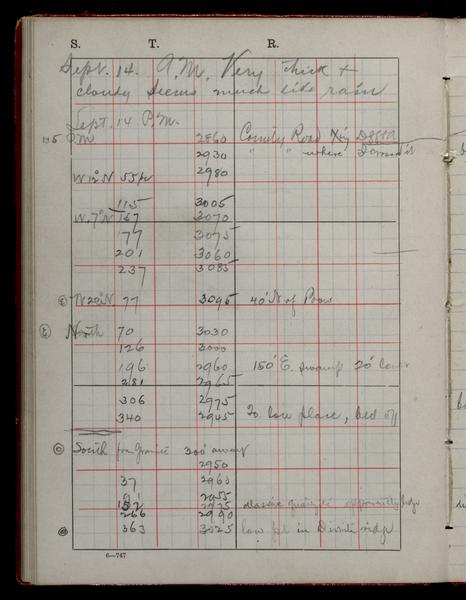 S. T. R.
Sept. 14. A.M. Very thick +
cloudy seems much like rain
Sept. 14 P.M.
2860 County Road
2930 " " where
W 12° N 55 2980
115 3005
W. 7° N 167 3070
177 3075
201 3060
237 3085
W 20° N 77 3095 40' N of
North 70 3030
126 3000
196 2960 150' E. swamp 20' lower
281 2965
306 2975
340 2945 To low place, bed off
South from Granite 300' away
2950
37 2963
2955
152 2975 massive apparently
266 2990
363 3025 low pt in Divide ridge
6—747